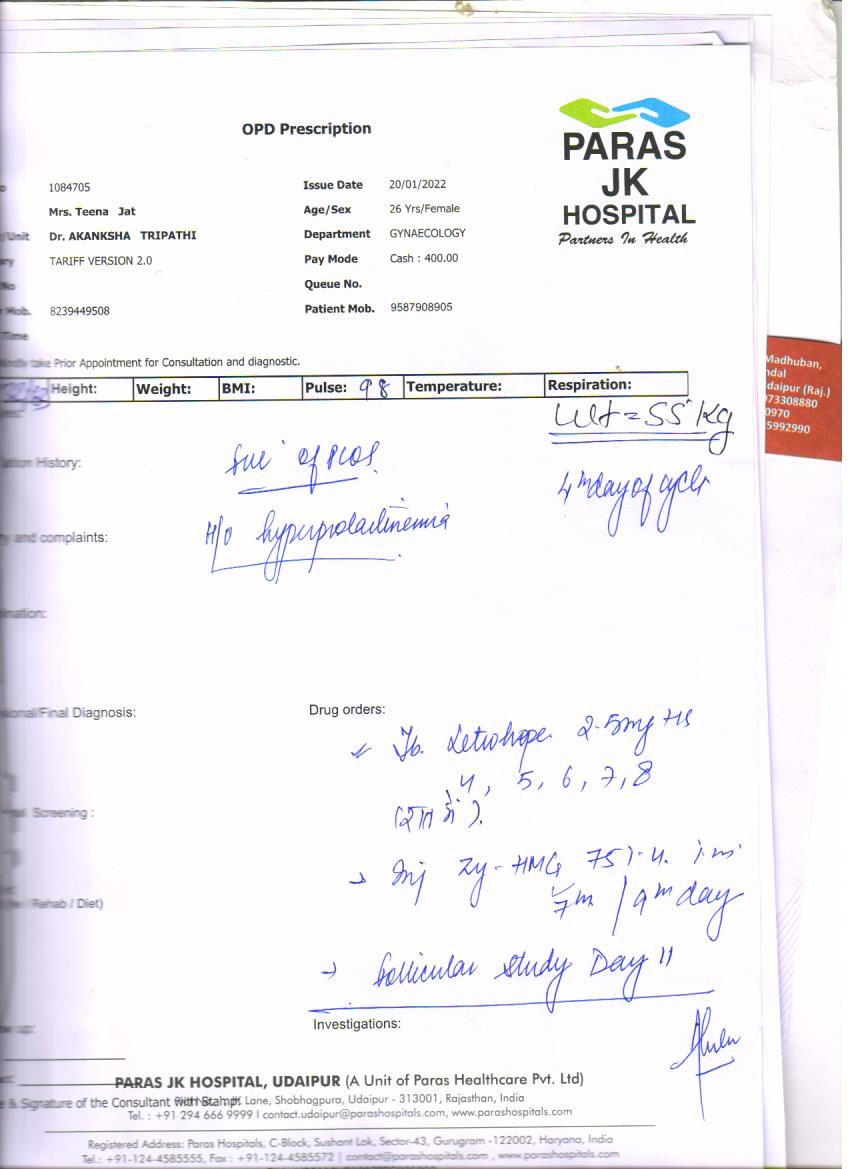 OPD Prescription
PARAS
JK
HOSPITAL
Partners In Health
1084705
Issue Date 20/01/2022
Mrs. Teena Jat
Age/Sex 26 Yrs/Female
/Unit Dr. AKANKSHA TRIPATHI
Department GYNAECOLOGY
TARIFF VERSION 2.0
Pay Mode Cash : 400.00
No
Queue No.
Mob. 8239449508
Patient Mob. 9587908905
Time
Kindly take Prior Appointment for Consultation and diagnostic.
Height: Weight: BMI: Pulse: 98 Temperature: Respiration:
Wt = 55 Kg
History:
of PCOS
4th day of cycle
and complaints:
H/o hyperprolactinemia
/Final Diagnosis:
Drug orders:
Tb. Letrohope 2.5mg HS
4, 5, 6, 7, 8
(रात में).
Screening :
→ Inj Zy-HMG 75 I.U. i.m
7th / 9th day
/ Rehab / Diet)
→ follicular study Day 11
Investigations:
PARAS JK HOSPITAL, UDAIPUR (A Unit of Paras Healthcare Pvt. Ltd)
& Signature of the Consultant with Stamp:
Lane, Shobhagpura, Udaipur - 313001, Rajasthan, India
Tel. : +91 294 666 9999 I contact.udaipur@parashospitals.com, www.parashospitals.com
Registered Address: Paras Hospitals, C-Block, Sushant Lok, Sector-43, Gurugram -122002, Haryana, India
Tel.: +91-124-4585555, Fax : +91-124-4585572 | contact@parashospitals.com , www.parashospitals.com
Madhuban,
daipur (Raj.)
73308880
0970
5992990